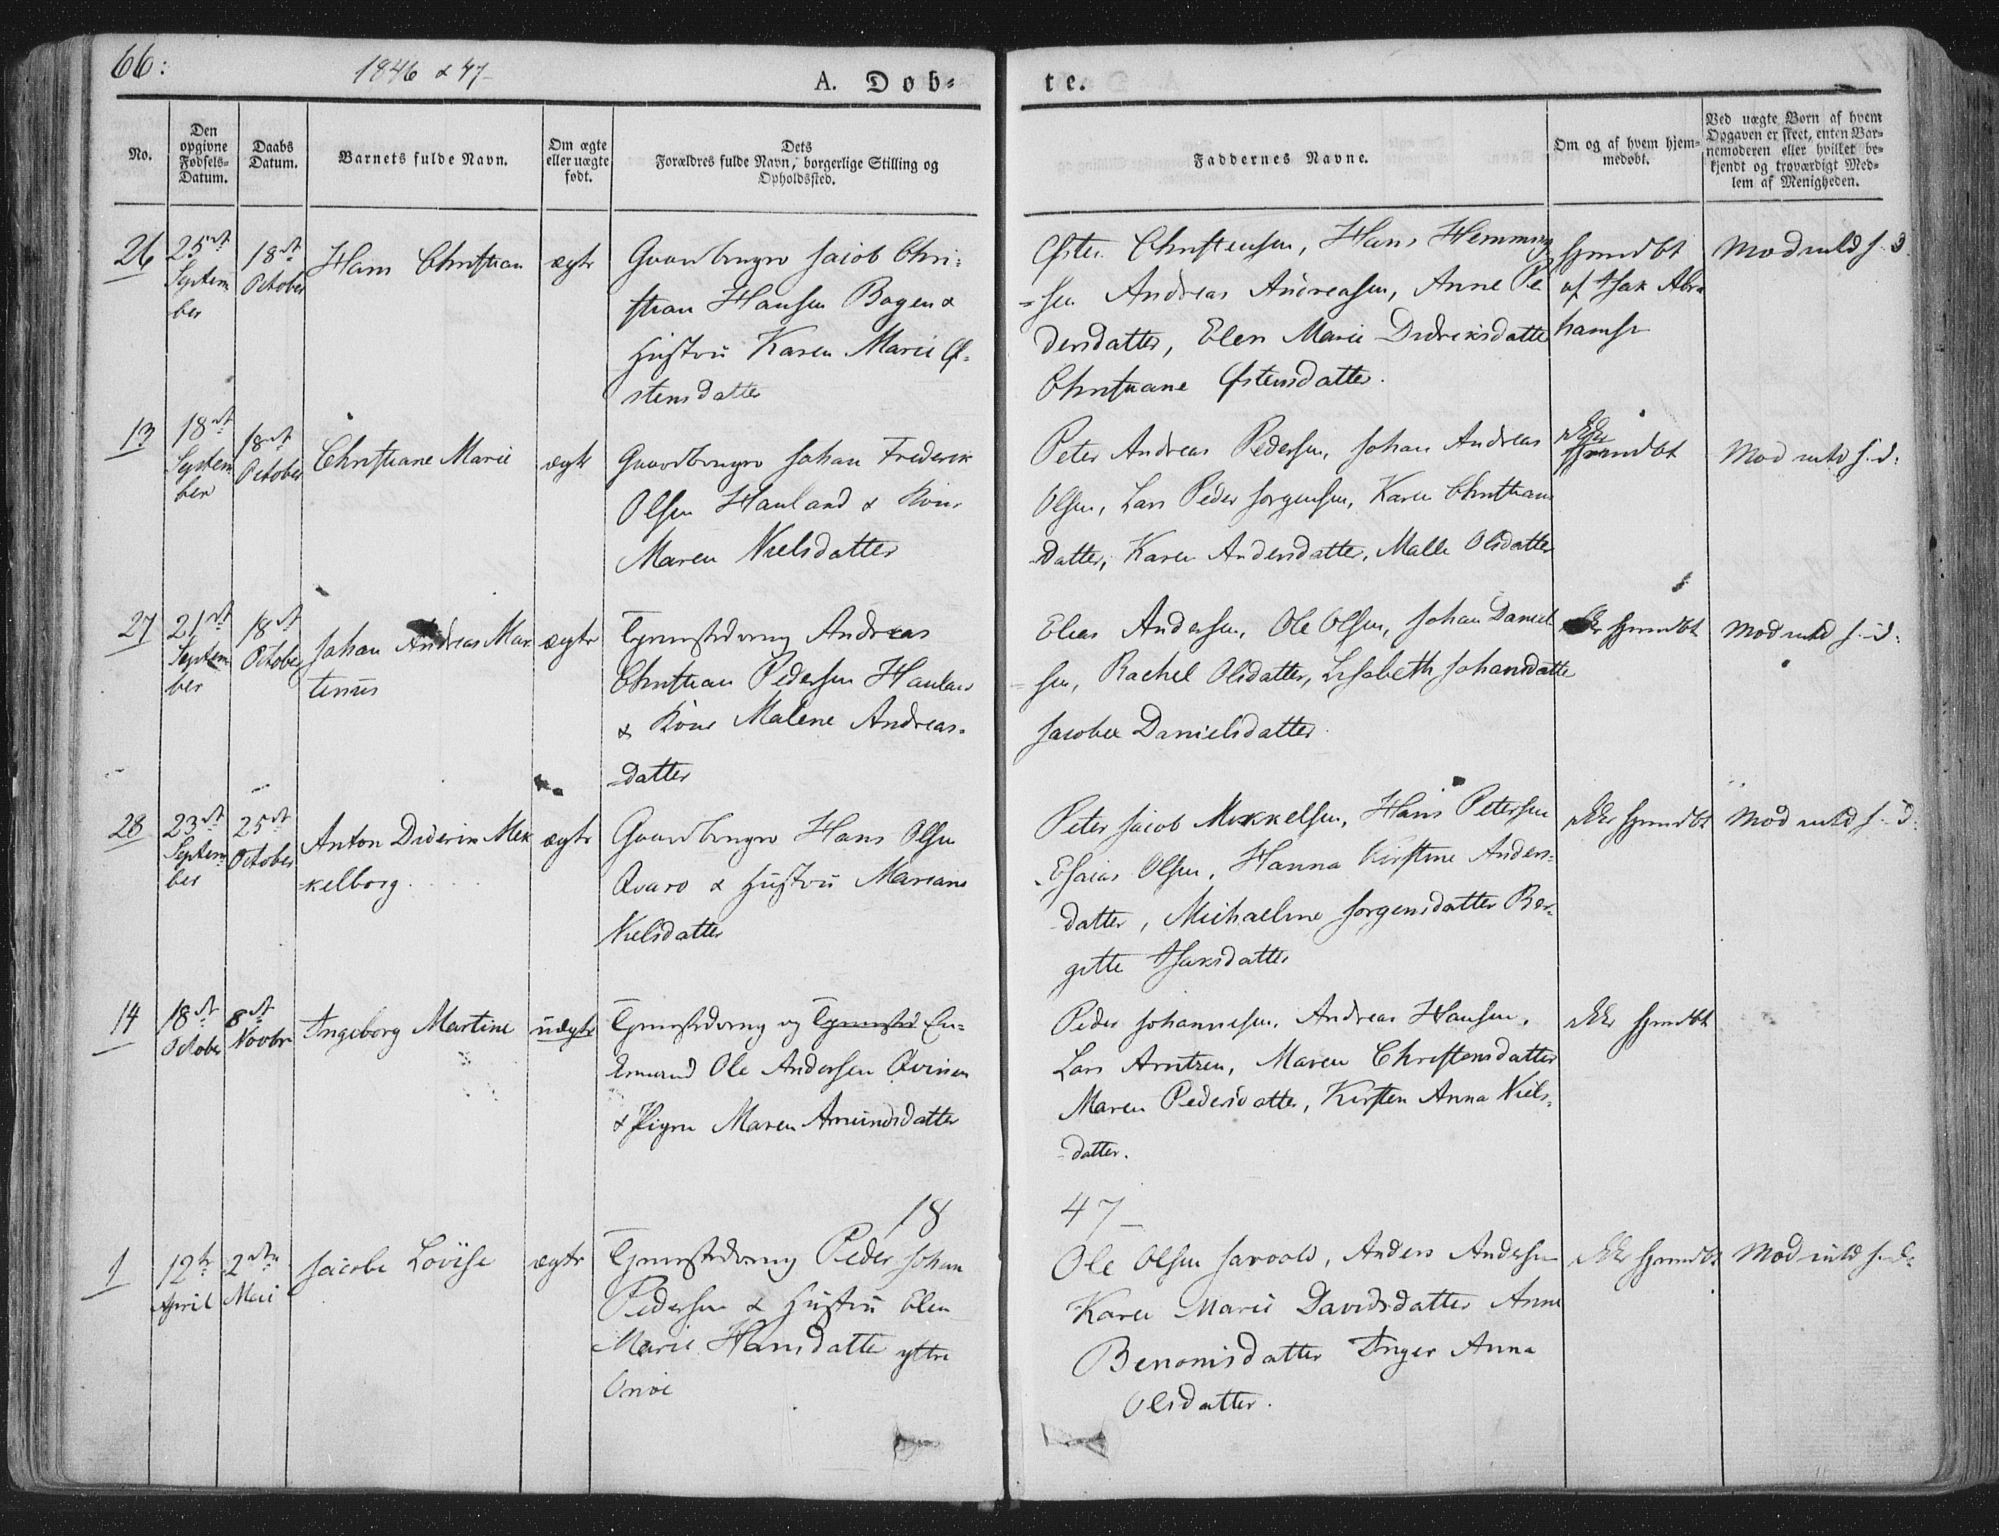 66:
1846 & 47
A. Døb-
te.
No.
Den opgivne Fødsels-Datum.
Daabs Datum.
Barnets fulde Navn.
Om ægte eller uægte født.
Dets Forældres fulde Navn, borgerlige Stilling og Opholdssted.
Faddernes Navne.
Om og af hvem hjem-medøbt.
Ved uægte Børn af hvem Opgaven er skeet, enten Bar-nemoderen eller hvilket be-kjendt og troværdigt Med-lem af Menigheden.
26
25de Septem ber
18de October
Hans Christian
ægte
Gaardbruger Jacob Chri-
stian Hansen Bogen &
Hustru Karen Marie Ø-
stensdatter
Østen Christensen, Hans Hemming
-sen Andreas Andreasen, Anne Pe
dersdatter, Elen Marie Didriksdatter
Christiane Østensdatter.
hjemdbt
af Isak Abra
hamsn
Mod indld s. d.
13
18de Septem ber
18de October
Christiane Marie
ægte
Gaardbruger Johan Frederik
Olsen Hauland & Kone
Maren Nielsdatter
Peter Andreas Pedersen, Johan Andreas
Olsen, Lars Peder Jørgensen, Karen Christians
Datter, Karen Andersdatter, Malle Olsdatter
ikke
hjemdbt
Mod indld s. d.
27
21de Septem ber
18de October
Johan Andreas Mar
tinus
ægte
Andreas
Christian Pedersen Hauland
& Kone Malene Andreas-
datter
Elias Andersen, Ole Olsen, Johan Daniel
sen, Rachel Olsdatter, Lisabeth Johansdatter
Jacobea Danielsdatter.
ikke hjemdbt
Mod indld s. d.
28
23de Septem ber
25de October
Anton Diderik Mek
-kelborg.
ægte
Gaardbruger Hans Olsen
Qvarø & Hustru Mariane
Nielsdatter
Peter Jacob Mikkelsen, Hans Petersen
Esaias Olsen, Hanna Kirstine Anders-
datter, Michaeline Jørgensdatter Ber-
gitte Isaksdatter
ikke hjemdbt
Mod indld s. d.
14
18de October
8de Novbr
Ingeborg Martine
uægte
og En-
kemand Ole Andersen
& Pigen Maren Amundsdatter
Peder Johannesen, Andreas Hansen,
Lars Arntzen, Maren Christensdatter
Maren Pedersdatter, Kirsten Anna Niels-
datter.
ikke hjemdbt
18
47
1
12te April
2den Mai
Jacobe Lovise
ægte
Peder Johan
Pedersen & Hustru Elen
Marie Hansdatter yttre
Ole Olsen Savoold, Anders Andersen
Karen Marie Davidsdatter Anne
Benonisdatter Inger Anna
Olsdatter.
ikke hjemdbt
Mod indld s. d.